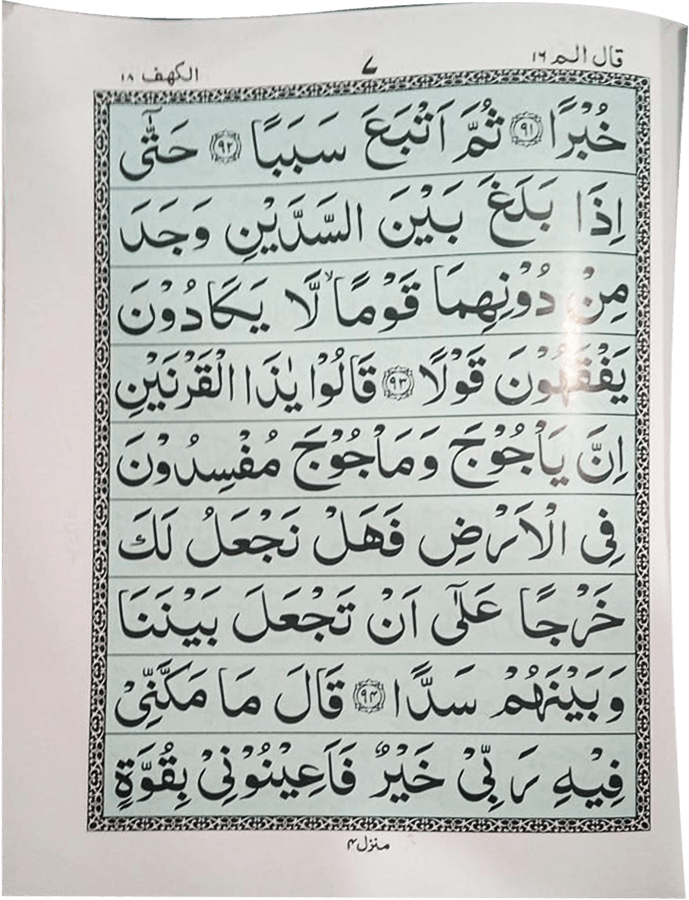 قال الم ١٦
٧
الكهف ١٨
خُبْرًا ﴿٩١﴾ ثُمَّ اَتْبَعَ سَبَبًا ﴿٩٢﴾ حَتّٰٓى
اِذَا بَلَغَ بَيْنَ السَّدَّيْنِ وَجَدَ
مِنْ دُوْنِهِمَا قَوْمًا ۙ لَّا يَكَادُوْنَ
يَفْقَهُوْنَ قَوْلًا ﴿٩٣﴾ قَالُوْا يٰذَا الْقَرْنَيْنِ
اِنَّ يَاْجُوْجَ وَمَاْجُوْجَ مُفْسِدُوْنَ
فِى الْاَرْضِ فَهَلْ نَجْعَلُ لَكَ
خَرْجًا عَلٰٓى اَنْ تَجْعَلَ بَيْنَنَا
وَبَيْنَهُمْ سَدًّا ﴿٩٤﴾ قَالَ مَا مَكَّنِّىْ
فِيْهِ رَبِّىْ خَيْرٌ فَاَعِيْنُوْنِىْ بِقُوَّةٍ
منزل ٤